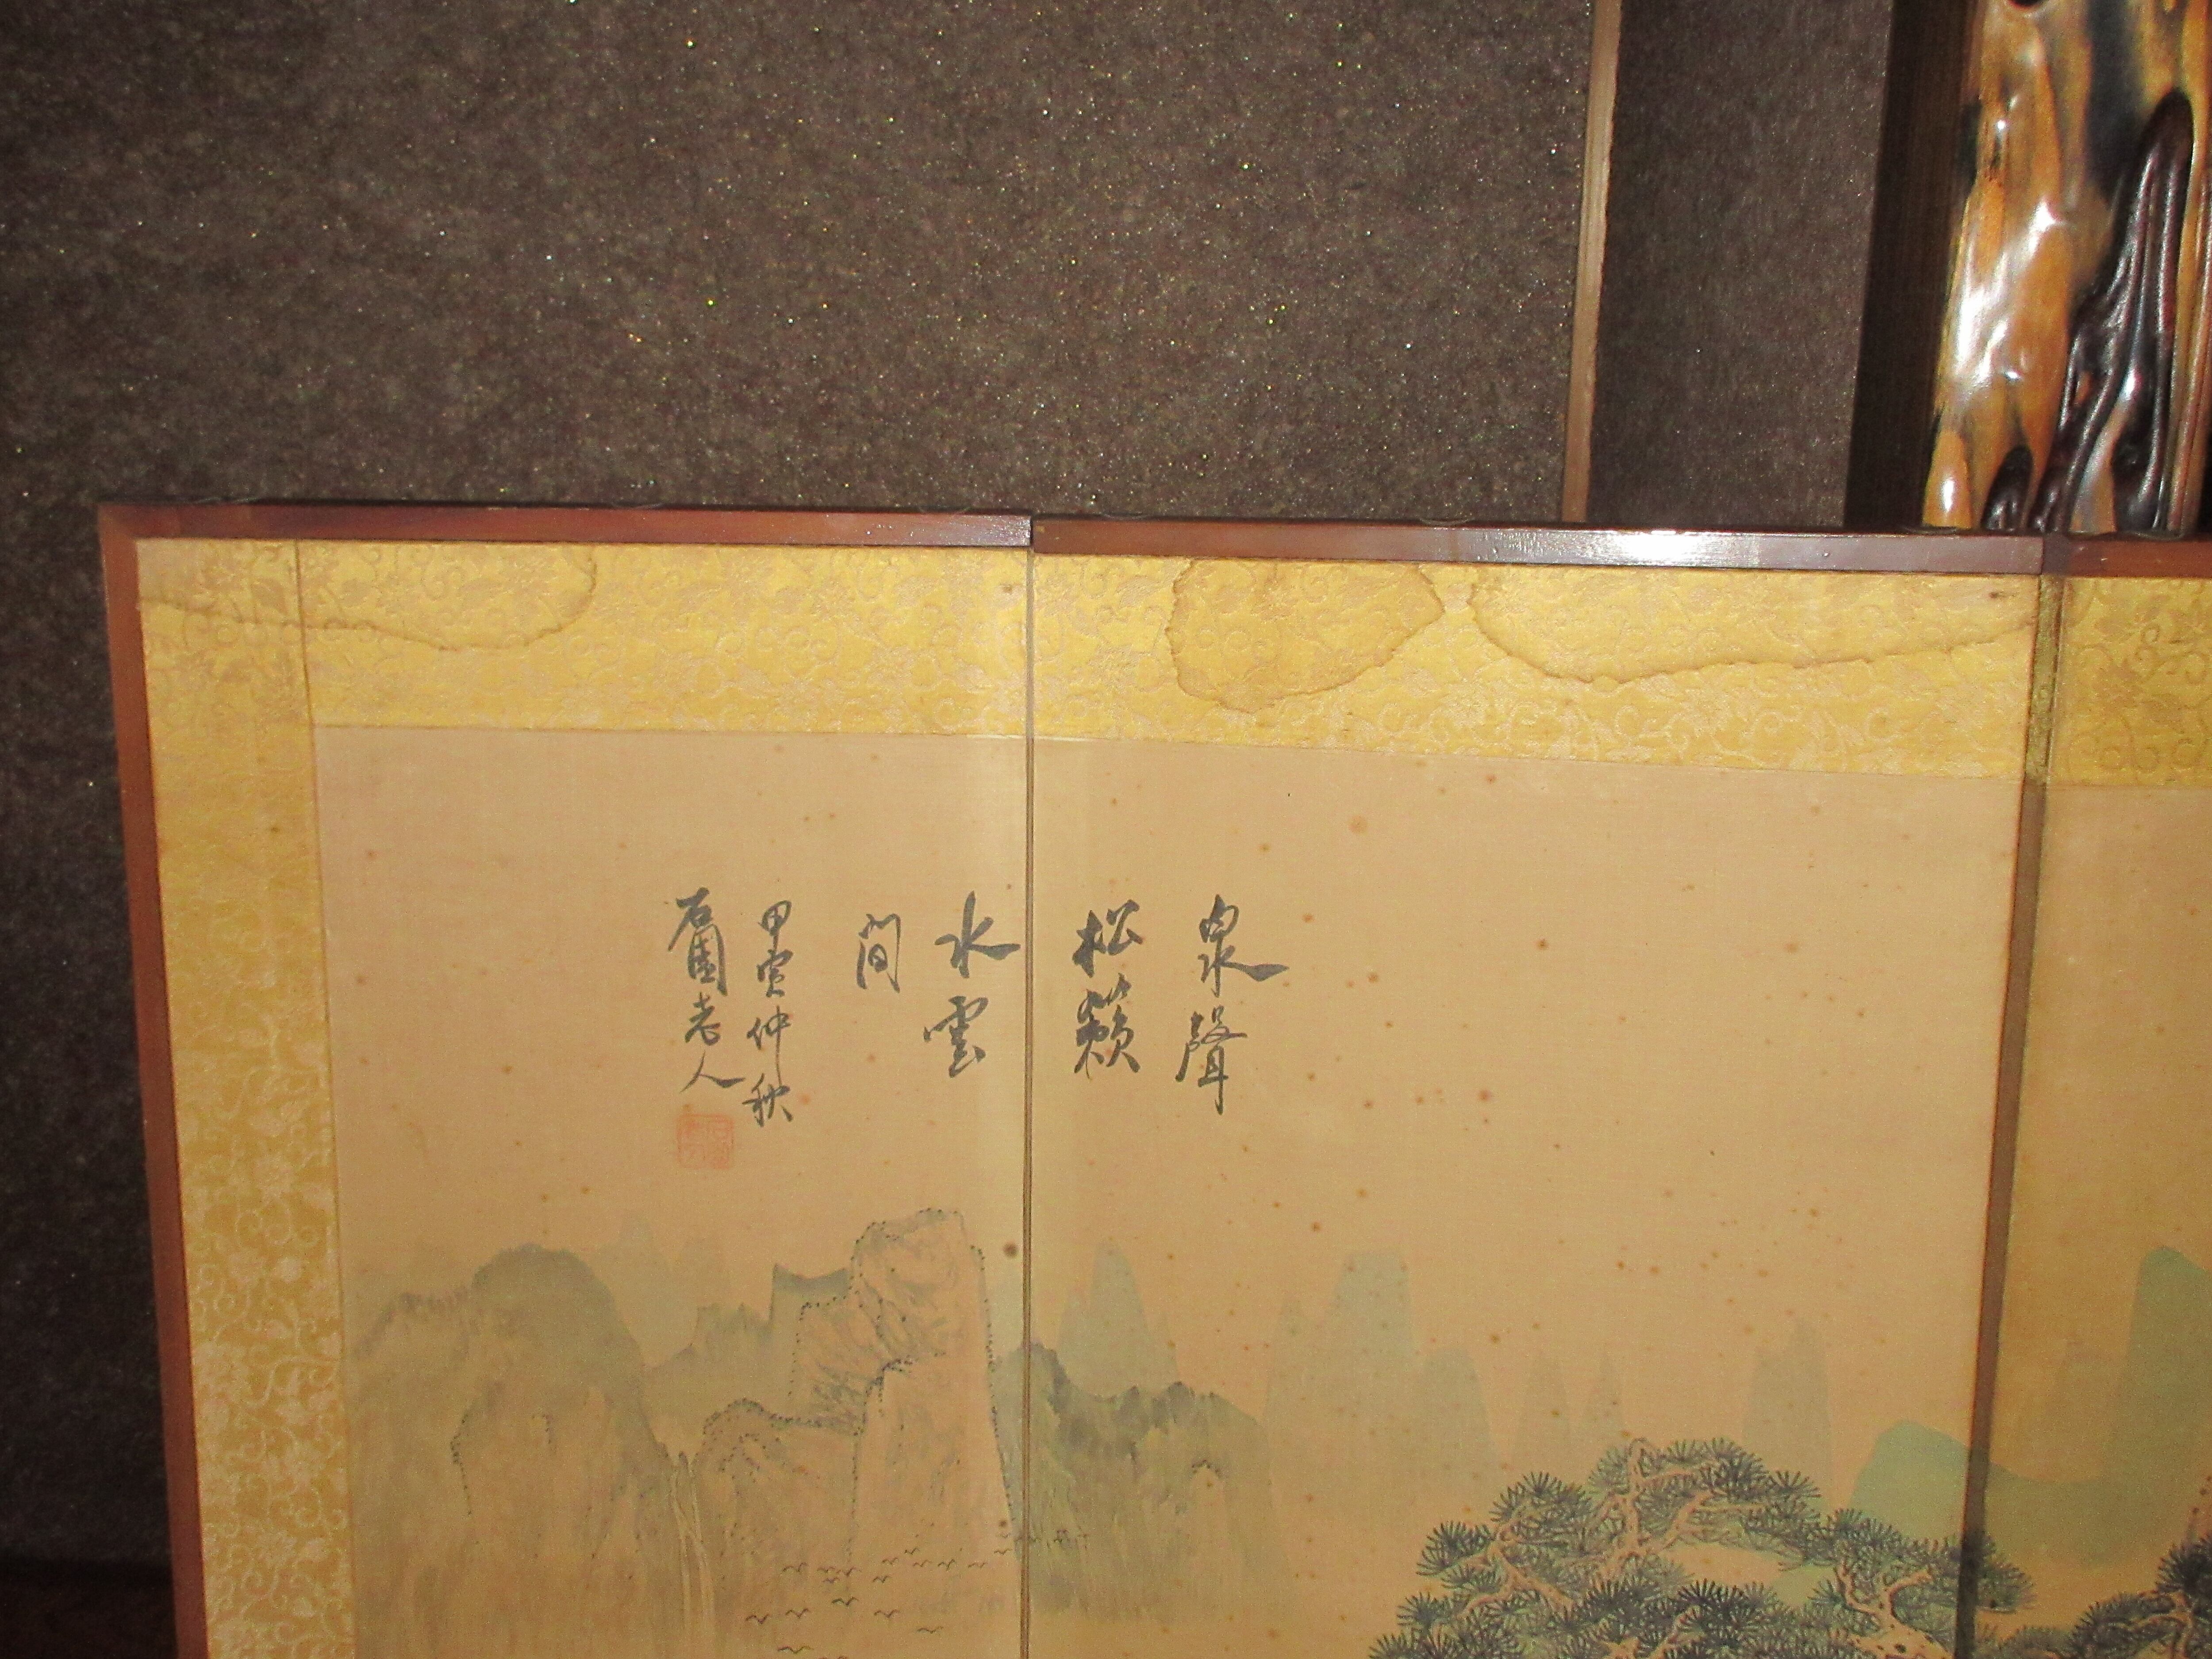 泉聲
松籟
水雲
間
甲寅仲秋
石圃老人